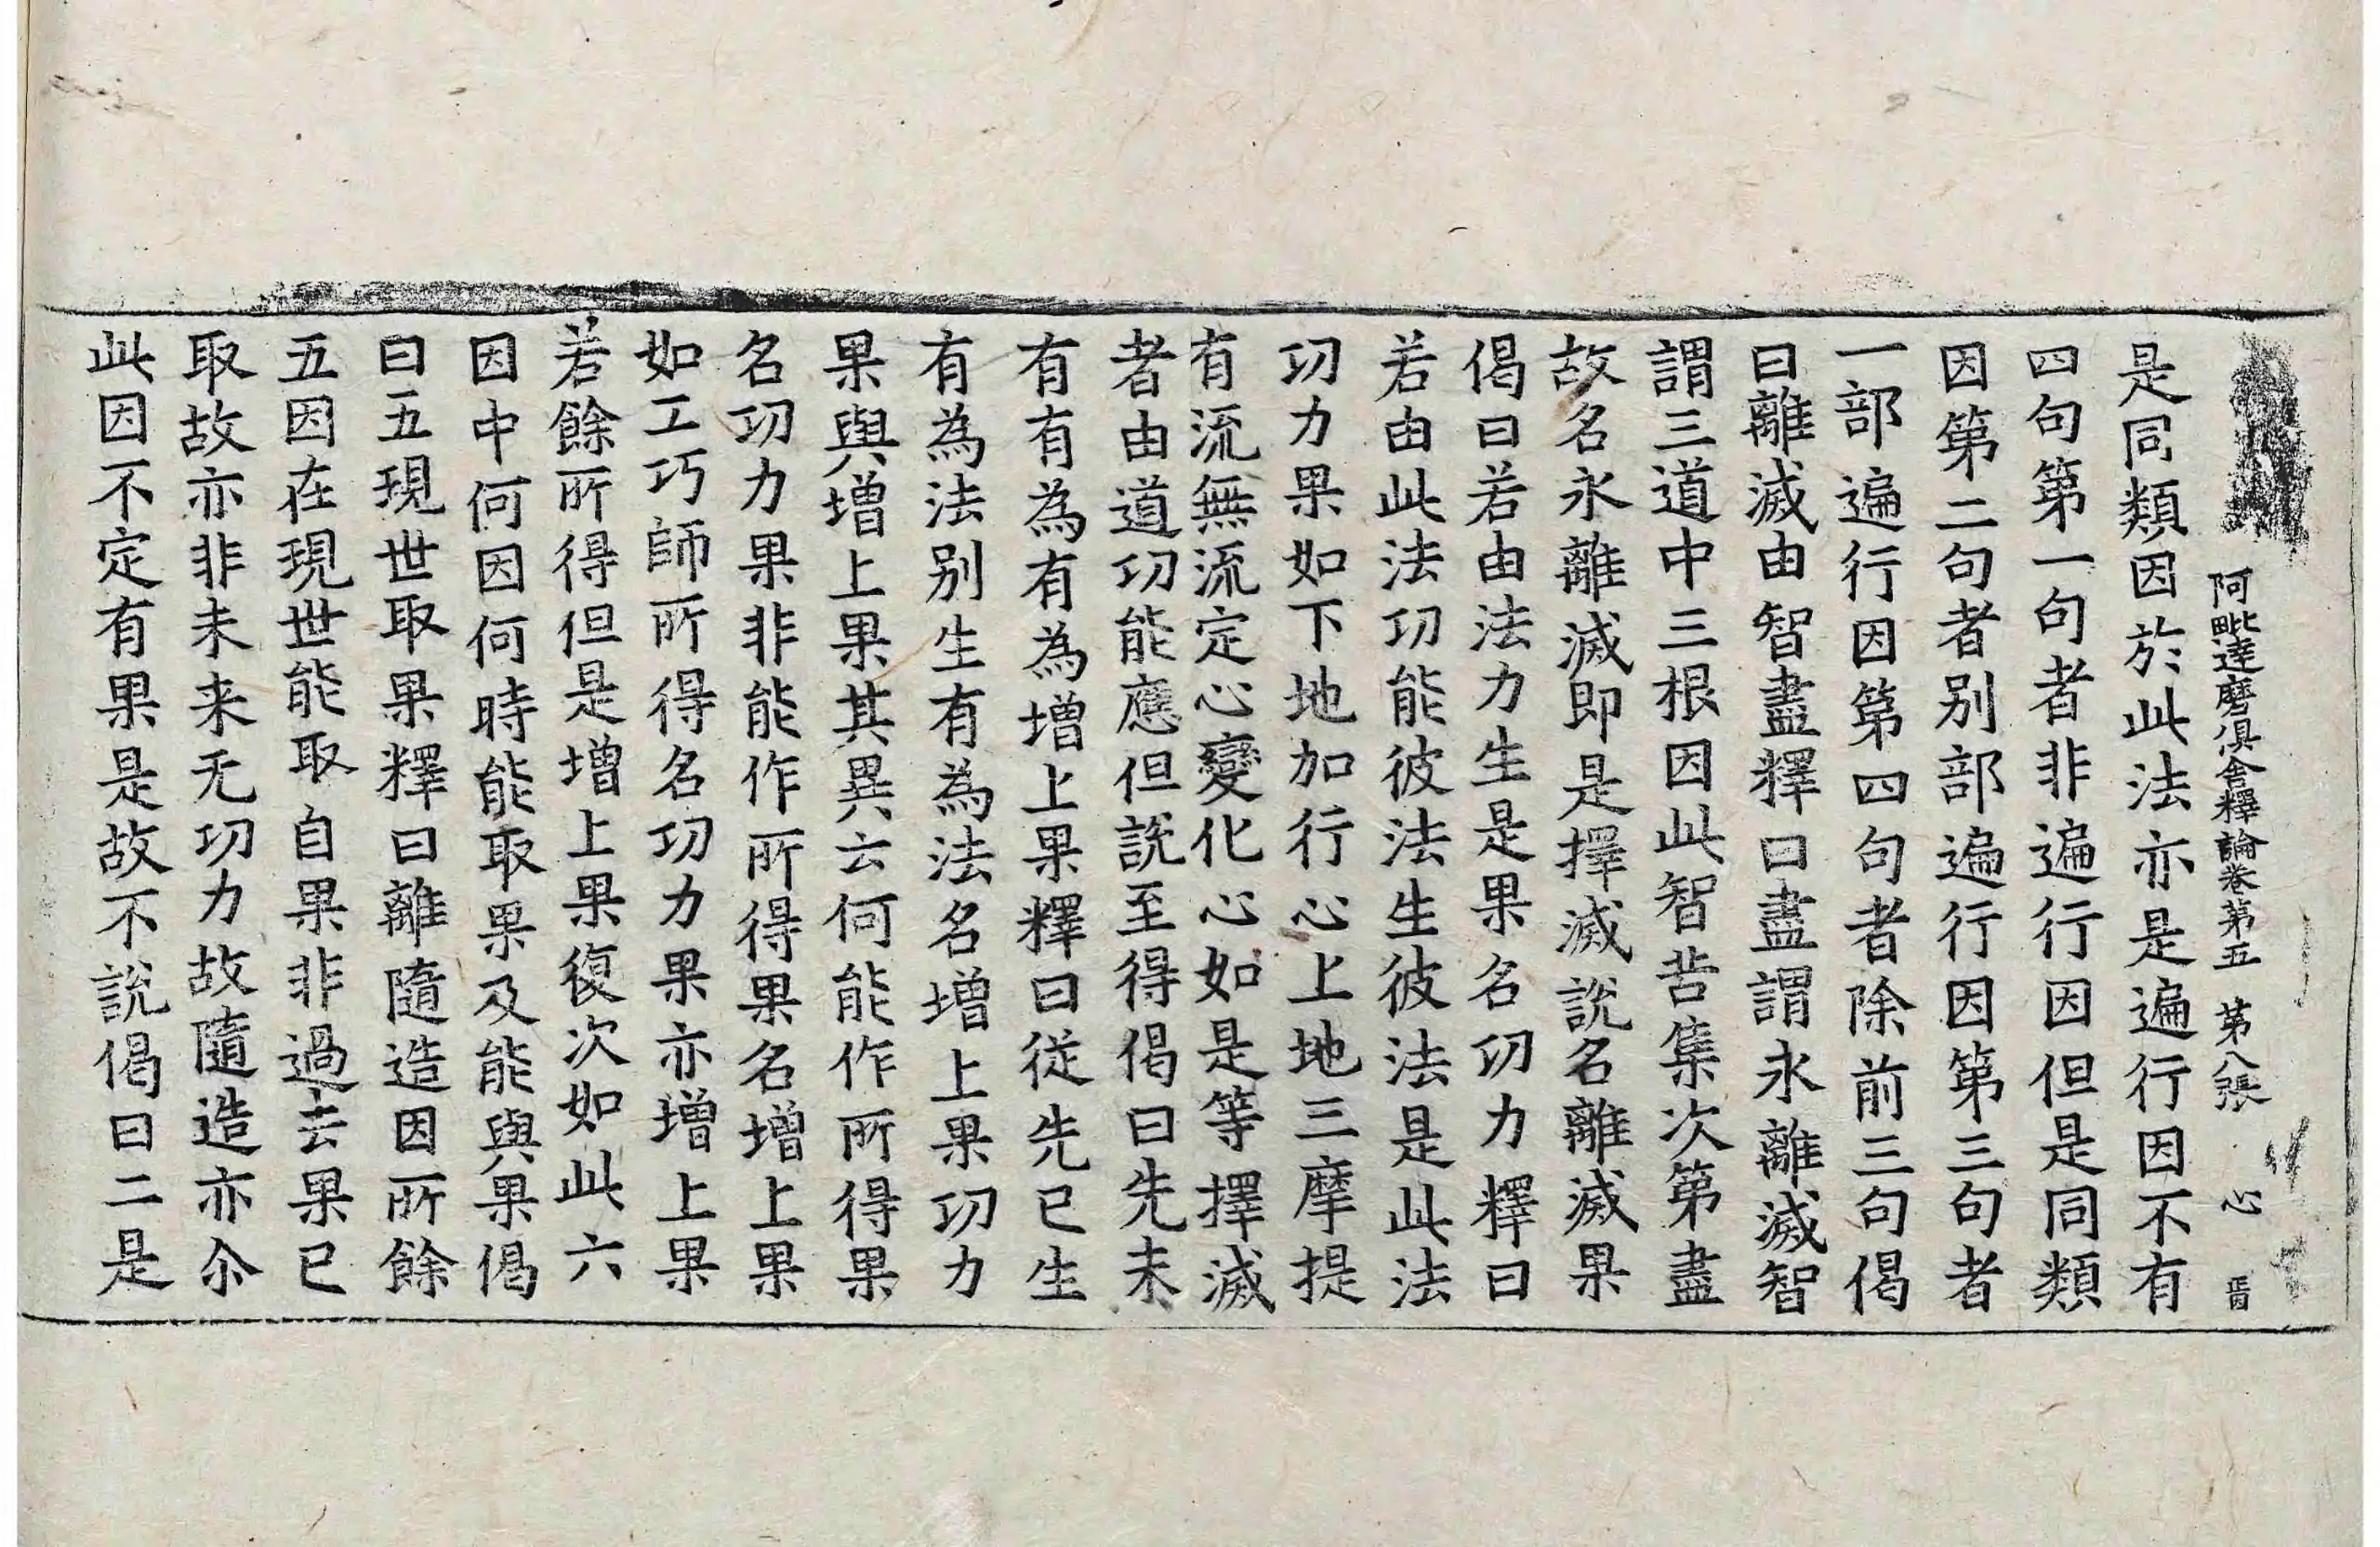 阿毗達磨俱舍釋論卷第五 第八張 心
是同類因於此法亦是遍行因不有
四句第一句者非遍行因但是同類
因第二句者別部遍行因第三句者
一部遍行因第四句者除前三句偈
曰離滅由智盡釋曰盡謂永離滅智
謂三道中三根因此智苦集次第盡
故名永離滅即是擇滅說名離滅果
偈曰若由法力生是果名功力釋曰
若由此法功能彼法生彼法是此法
功力果如下地加行心上地三摩提
有流無流定心變化心如是等擇滅
者由道功能應但說至得偈曰先未
有有為有為增上果釋曰從先已生
有為法別生有為法名增上果功力
果與增上果其異云何能作所得果
名功力果非能作所得果名增上果
如工巧師所得名功力果亦增上果
若餘所得但是增上果復次如此六
因中何因何時能取果及能與果偈
曰五現世取果釋曰離隨造因所餘
五因在現世能取自果非過去果已
取故亦非未来无功力故隨造亦尒
此因不定有果是故不說偈曰二是